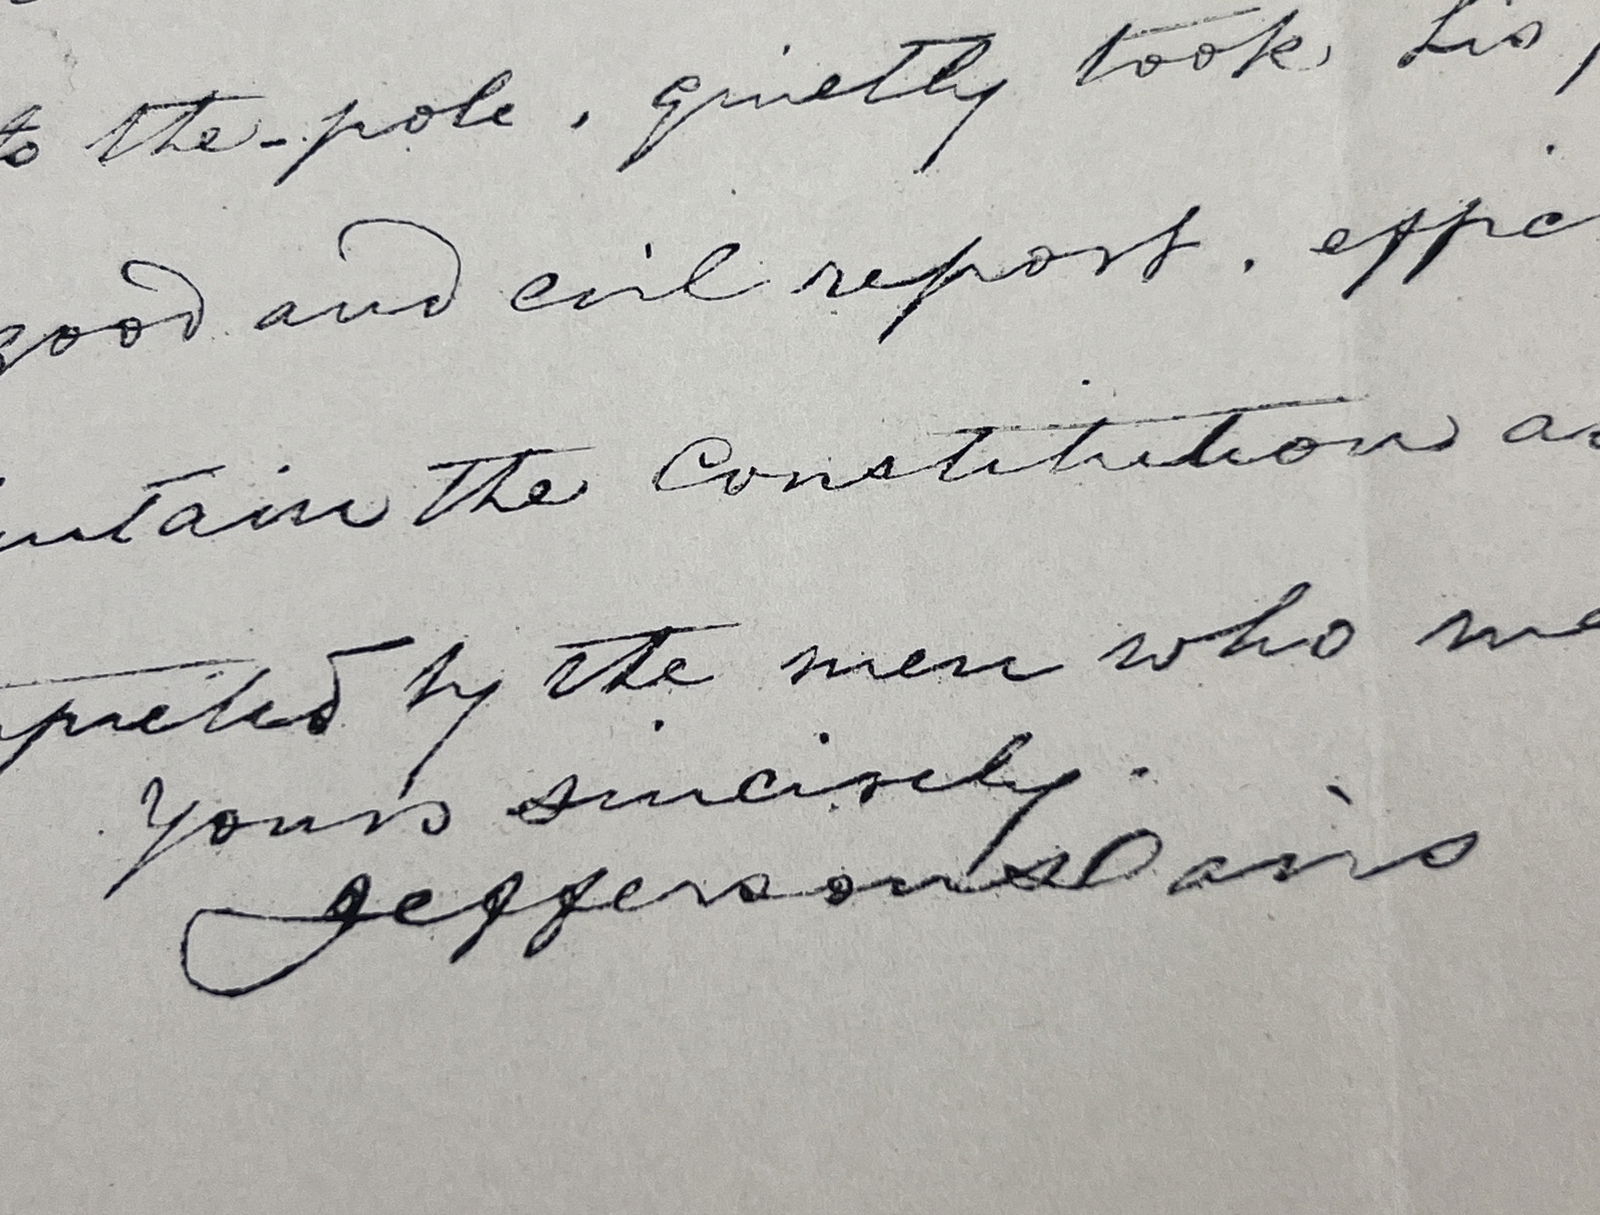 to the-pole, quietly took his
good and evil report, effic
intain the Constitution as
rpreted by the men who ma
Yours sincerely.
Jefferson Davis